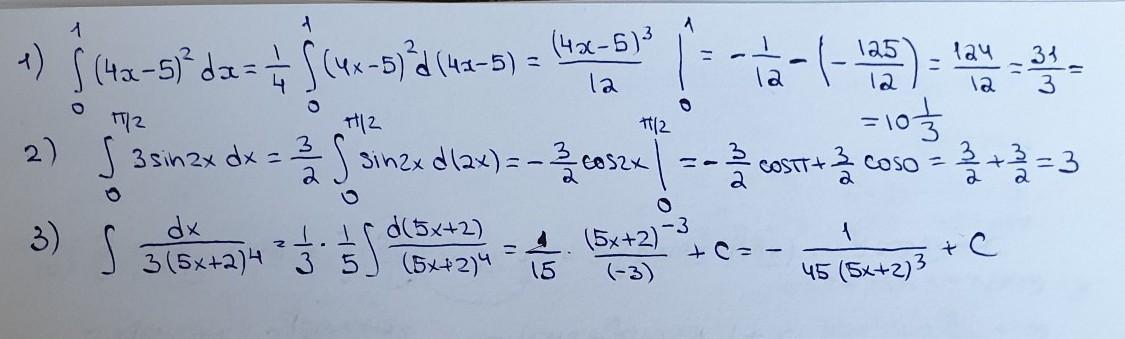 1) ∫₀¹ (4x-5)² dx = 1/4 ∫₀¹ (4x-5)² d(4x-5) = (4x-5)³/12 |₀¹ = - 1/12 - (- 125/12) = 124/12 = 31/3 =
= 10 1/3
2) ∫₀^(π/2) 3sin2x dx = 3/2 ∫₀^(π/2) sin2x d(2x) = - 3/2 cos2x |₀^(π/2) = - 3/2 cosπ + 3/2 cos0 = 3/2 + 3/2 = 3
3) ∫ dx/(3(5x+2)⁴) = 1/3 · 1/5 ∫ d(5x+2)/(5x+2)⁴ = 1/15 · (5x+2)⁻³/(-3) + C = - 1/(45(5x+2)³) + C